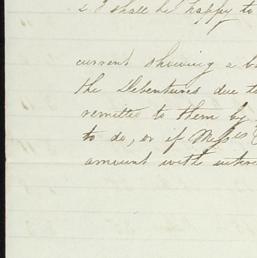 & I shall be happy to
current showing a b
the Debentures due to
remitted to them by
to do, or if Messrs
amount with inter